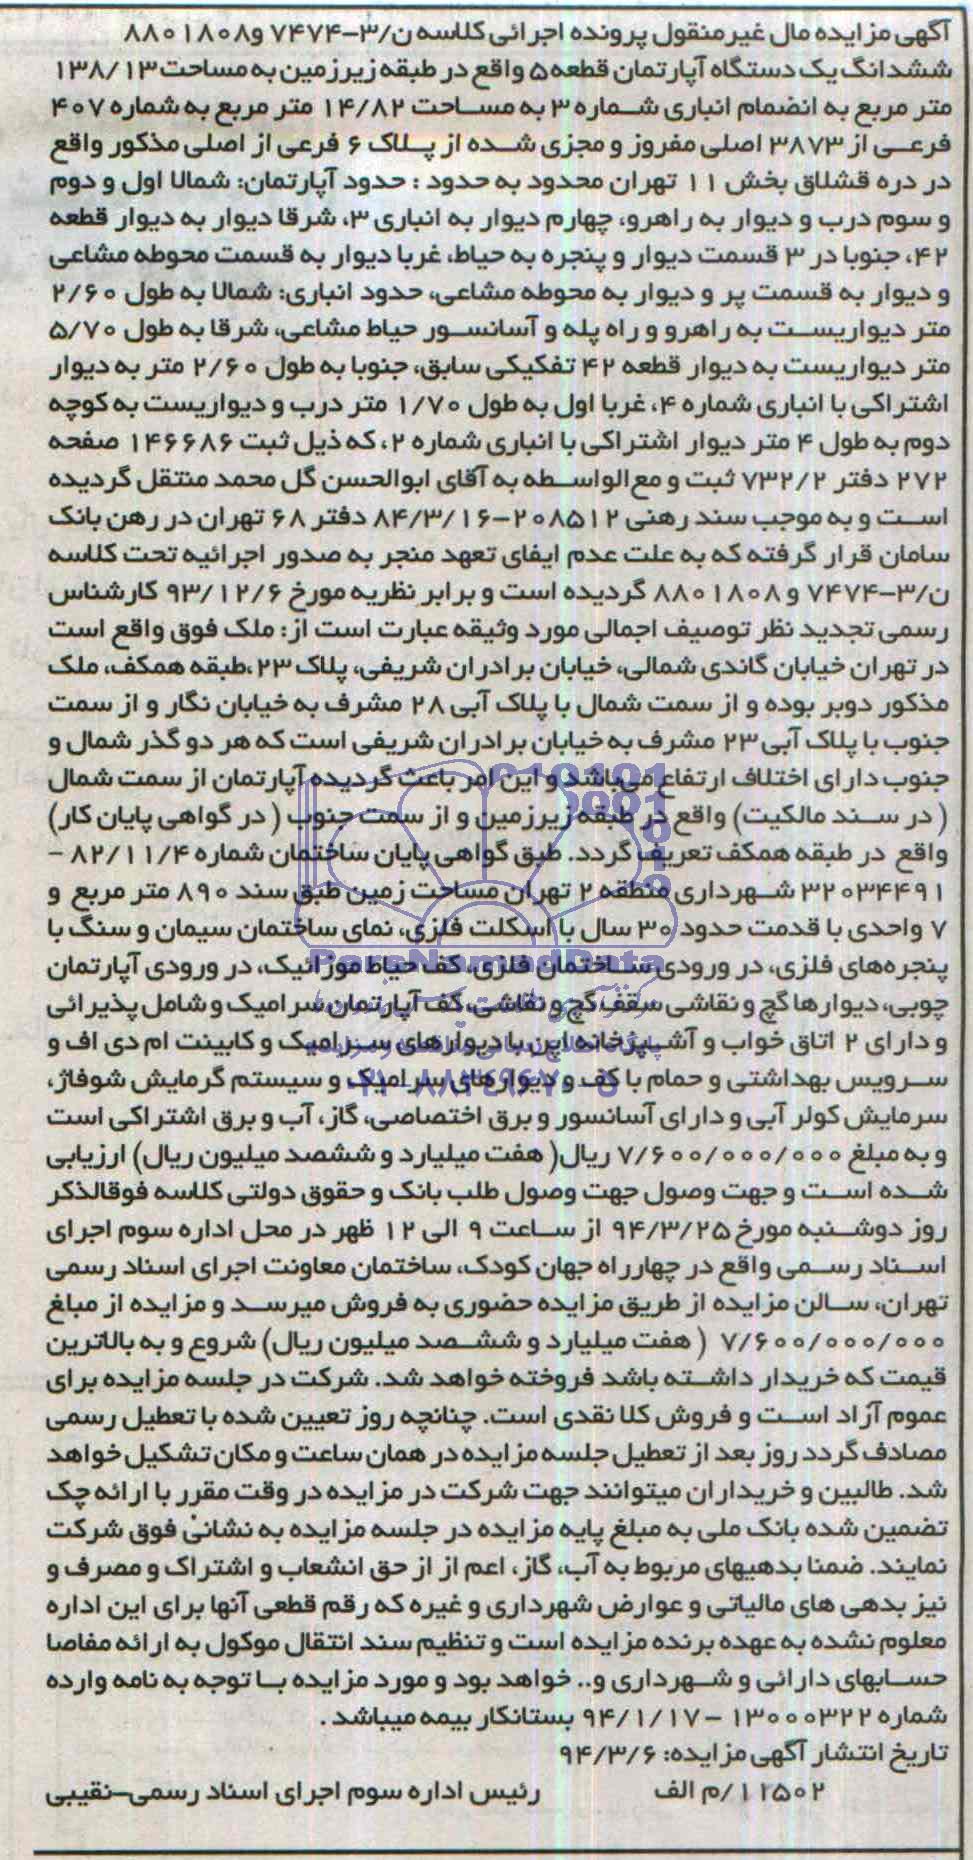 آگهی مزایده مال غیرمنقول پرونده اجرائی کلاسه ن/۳-۷۴۷۴ و۸۸۰۱۸۰۸
ششدانگ یک دستگاه آپارتمان قطعه۵ واقع در طبقه زیرزمین به مساحت ۱۳۸/۱۳
متر مربع به انضمام انباری شماره ۳ به مساحت ۱۴/۸۲ متر مربع به شماره ۴۰۷
فرعی از ۳۸۷۳ اصلی مفروز و مجزی شده از پلاک ۶ فرعی از اصلی مذکور واقع
در دره قشلاق بخش ۱۱ تهران محدود به حدود : حدود آپارتمان: شمالا اول و دوم
و سوم درب و دیوار به راهرو، چهارم دیوار به انباری ۳، شرقا دیوار به دیوار قطعه
۴۲، جنوبا در ۳ قسمت دیوار و پنجره به حیاط، غربا دیوار به قسمت محوطه مشاعی
و دیوار به قسمت پر و دیوار به محوطه مشاعی، حدود انباری: شمالا به طول ۲/۶۰
متر دیواریست به راهرو و راه پله و آسانسور حیاط مشاعی، شرقا به طول ۵/۷۰
متر دیواریست به دیوار قطعه ۴۲ تفکیکی سابق، جنوبا به طول ۲/۶۰ متر به دیوار
اشتراکی با انباری شماره ۴، غربا اول به طول ۱/۷۰ متر درب و دیواریست به کوچه
دوم به طول ۴ متر دیوار اشتراکی با انباری شماره ۲، که ذیل ثبت ۱۴۶۶۸۶ صفحه
۲۷۲ دفتر ۷۳۲/۲ ثبت و مع الواسطه به آقای ابوالحسن گل محمد منتقل گردیده
است و به موجب سند رهنی ۲۰۸۵۱۲-۸۴/۳/۱۶ دفتر ۶۸ تهران در رهن بانک
سامان قرار گرفته که به علت عدم ایفای تعهد منجر به صدور اجرائیه تحت کلاسه
ن/۳-۷۴۷۴ و ۸۸۰۱۸۰۸ گردیده است و برابر نظریه مورخ ۹۳/۱۲/۶ کارشناس
رسمی تجدید نظر توصیف اجمالی مورد وثیقه عبارت است از: ملک فوق واقع است
در تهران خیابان گاندی شمالی، خیابان برادران شریفی، پلاک ۲۳ ،طبقه همکف، ملک
مذکور دوبر بوده و از سمت شمال با پلاک آبی ۲۸ مشرف به خیابان نگار و از سمت
جنوب با پلاک آبی ۲۳ مشرف به خیابان برادران شریفی است که هر دو گذر شمال و
جنوب دارای اختلاف ارتفاع می‌باشد و این امر باعث گردیده آپارتمان از سمت شمال
( در سند مالکیت) واقع در طبقه زیرزمین و از سمت جنوب ( در گواهی پایان کار)
واقع در طبقه همکف تعریف گردد. طبق گواهی پایان ساختمان شماره ۸۲/۱۱/۴ -
۳۲۰۳۴۴۹۱ شهرداری منطقه ۲ تهران مساحت زمین طبق سند ۸۹۰ متر مربع و
۷ واحدی با قدمت حدود ۳۰ سال با اسکلت فلزی، نمای ساختمان سیمان و سنگ با
پنجره‌های فلزی، در ورودی ساختمان فلزی، کف حیاط موزائیک، در ورودی آپارتمان
چوبی، دیوارها گچ و نقاشی سقف گچ و نقاشی، کف آپارتمان سرامیک و شامل پذیرائی
و دارای ۲ اتاق خواب و آشپزخانه اپن با دیوارهای سرامیک و کابینت ام دی اف و
سرویس بهداشتی و حمام با کف و دیوارهای سرامیک و سیستم گرمایش شوفاژ،
سرمایش کولر آبی و دارای آسانسور و برق اختصاصی، گاز، آب و برق اشتراکی است
و به مبلغ ۷/۶۰۰/۰۰۰/۰۰۰ ریال( هفت میلیارد و ششصد میلیون ریال) ارزیابی
شده است و جهت وصول جهت وصول طلب بانک و حقوق دولتی کلاسه فوقالذکر
روز دوشنبه مورخ ۹۴/۳/۲۵ از ساعت ۹ الی ۱۲ ظهر در محل اداره سوم اجرای
اسناد رسمی واقع در چهارراه جهان کودک، ساختمان معاونت اجرای اسناد رسمی
تهران، سالن مزایده از طریق مزایده حضوری به فروش میرسد و مزایده از مبلغ
۷/۶۰۰/۰۰۰/۰۰۰ ( هفت میلیارد و ششصد میلیون ریال) شروع و به بالاترین
قیمت که خریدار داشته باشد فروخته خواهد شد. شرکت در جلسه مزایده برای
عموم آزاد است و فروش کلا نقدی است. چنانچه روز تعیین شده با تعطیل رسمی
مصادف گردد روز بعد از تعطیل جلسه مزایده در همان ساعت و مکان تشکیل خواهد
شد. طالبین و خریداران میتوانند جهت شرکت در مزایده در وقت مقرر با ارائه چک
تضمین شده بانک ملی به مبلغ پایه مزایده در جلسه مزایده به نشانی فوق شرکت
نمایند. ضمنا بدهیهای مربوط به آب، گاز، اعم از از حق انشعاب و اشتراک و مصرف و
نیز بدهی های مالیاتی و عوارض شهرداری و غیره که رقم قطعی آنها برای این اداره
معلوم نشده به عهده برنده مزایده است و تنظیم سند انتقال موکول به ارائه مفاصا
حسابهای دارائی و شهرداری و.. خواهد بود و مورد مزایده با توجه به نامه وارده
شماره ۱۳۰۰۰۳۲۲ - ۹۴/۱/۱۷ بستانکار بیمه میباشد .
تاریخ انتشار آگهی مزایده: ۹۴/۳/۶
۱۱۵۰۲/م الف رئیس اداره سوم اجرای اسناد رسمی-نقیبی
ParsNamadData
۰۲۱-۸۸۳۴۹۶۷۰